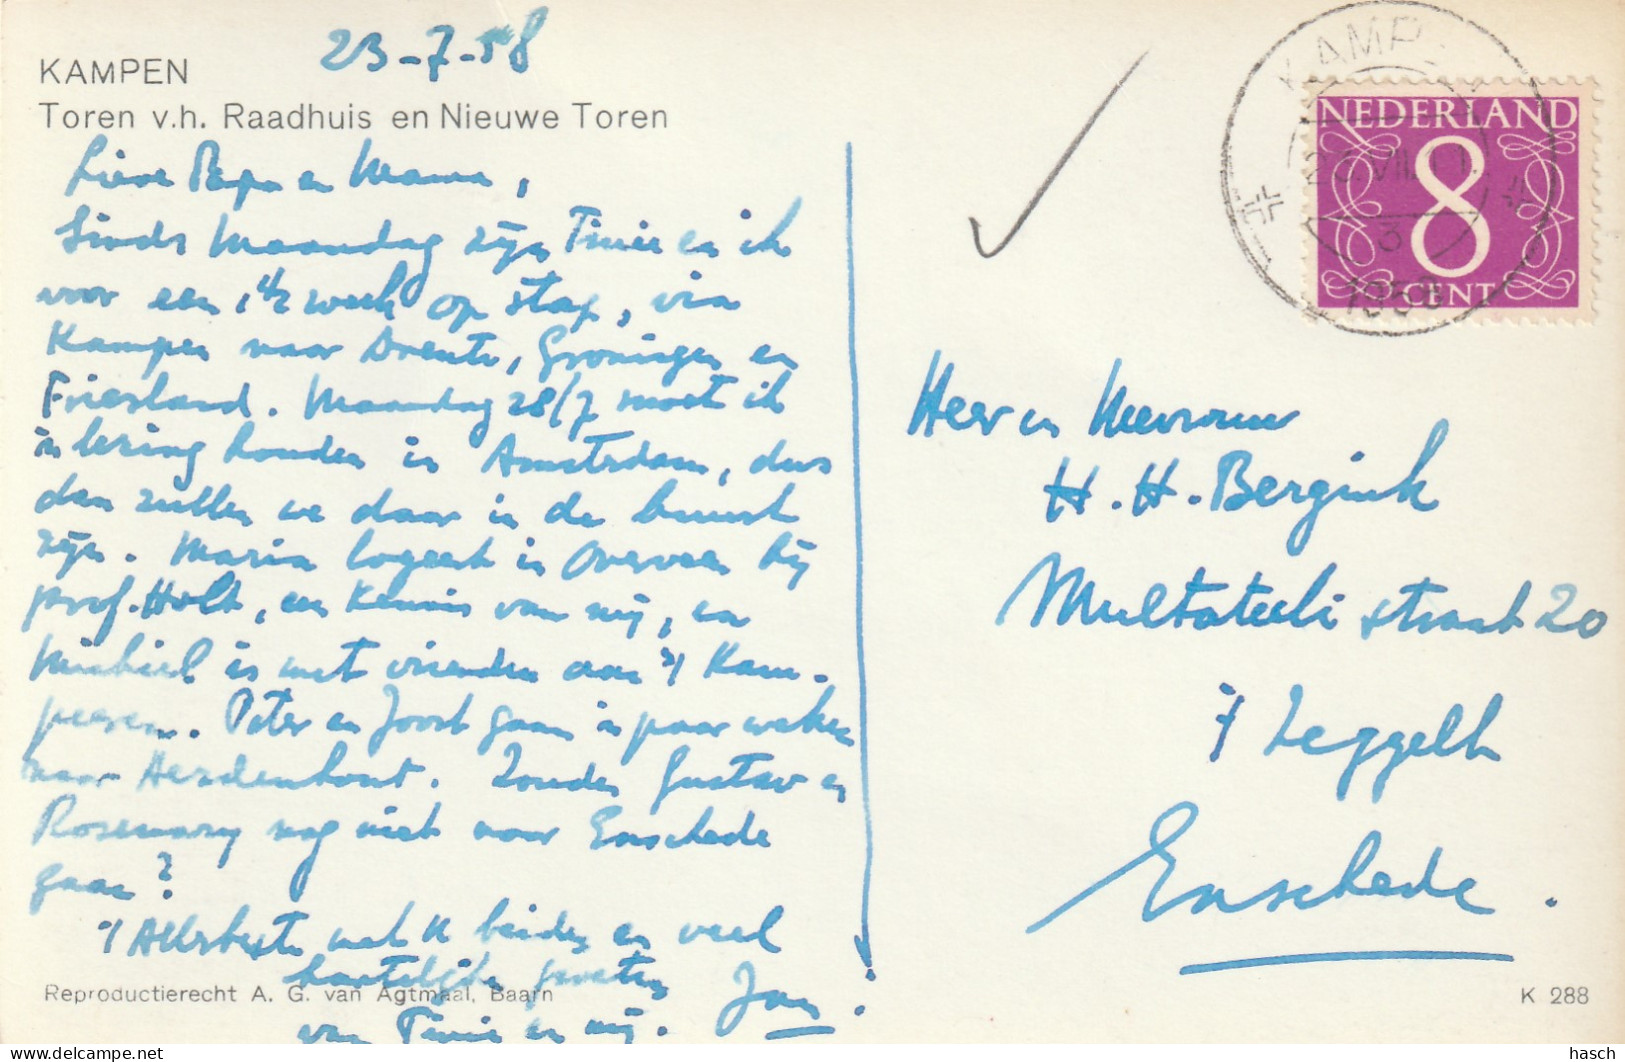 23-7-58
KAMPEN
Toren v.h. Raadhuis en Nieuwe Toren
Lieve Papa en Mama,
Sinds Maandag zijn Tinie en ik
voor een 1 1/2 week op stap, via
Kampen naar Drente, Groningen en
Friesland. Maandag 28/7 moet ik
in lezing houden in Amsterdam, dus
dan zullen we daar in de buurt
zijn. Maria logeert in Overveen bij
prof. Holt, een kennis van mij, en
Michiel is met vrienden aan 't Kam-
peeren. Peter en Joost gaan 'n paar weken
naar Aerdenhout. Zouden Gustav en
Rosemary nog niet naar Enschede
gaan?
't Allerbeste met U beiden en veel
hartelijke groeten
van Tinie en mij. Jan.
Reproductierecht A. G. van Agtmaal, Baarn
KAMP
VII
3
1958
NEDERLAND
8
CENT
Heer en Mevrouw
H. H. Bergink
Multatuli straat 20
't Zeggelt
Enschede.
K 288
hasch